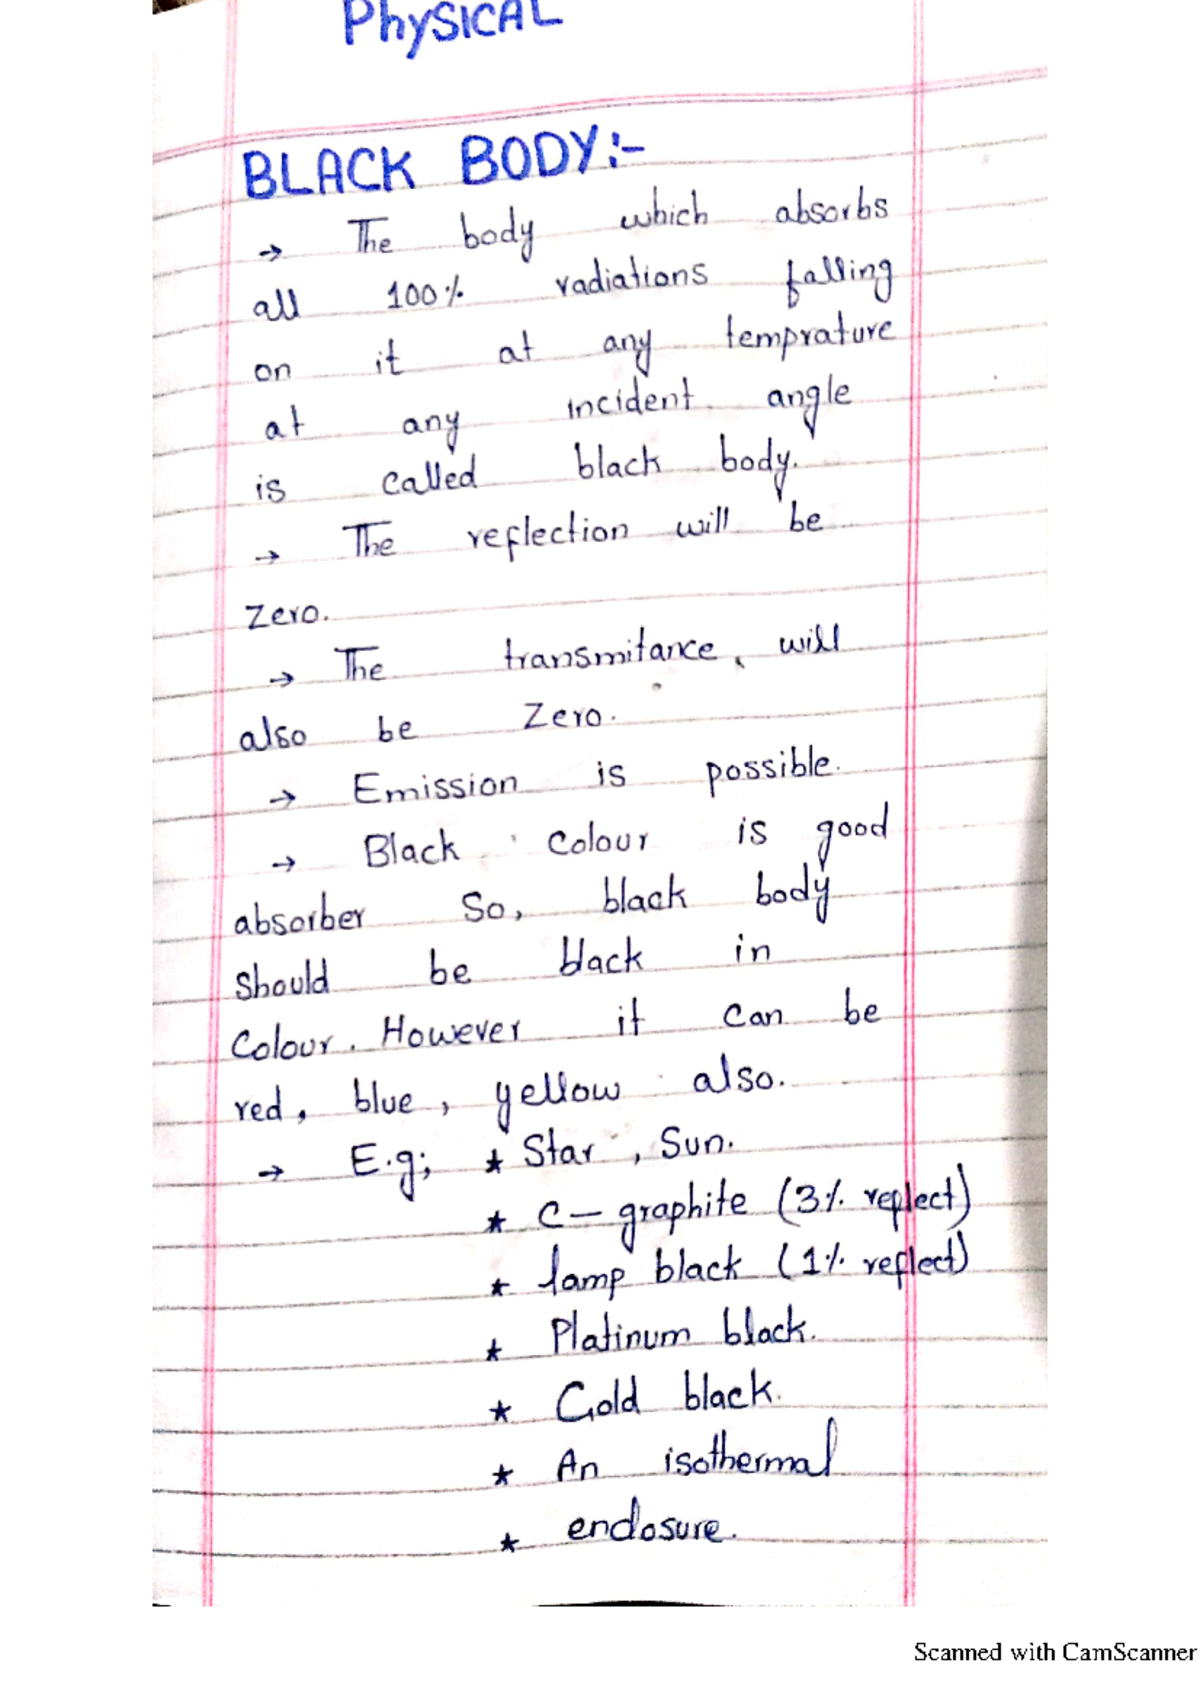 PhySICAL
BLACK BODY:-
→ The body which absorbs
all 100% radiations falling
on it at any temprature
at any incident angle
is called black body.
→ The reflection will be
Zero.
→ The transmitance, will
also be Zero.
→ Emission is possible.
→ Black colour is good
absorber So, black body
should be black in
Colour. However it can be
red, blue, yellow also.
→ E.g; ★ Star, Sun.
★ C- graphite (3% reflect)
★ lamp black (1% reflect)
★ Platinum black.
★ Gold black.
★ An isothermal
★ enclosure.
Scanned with CamScanner